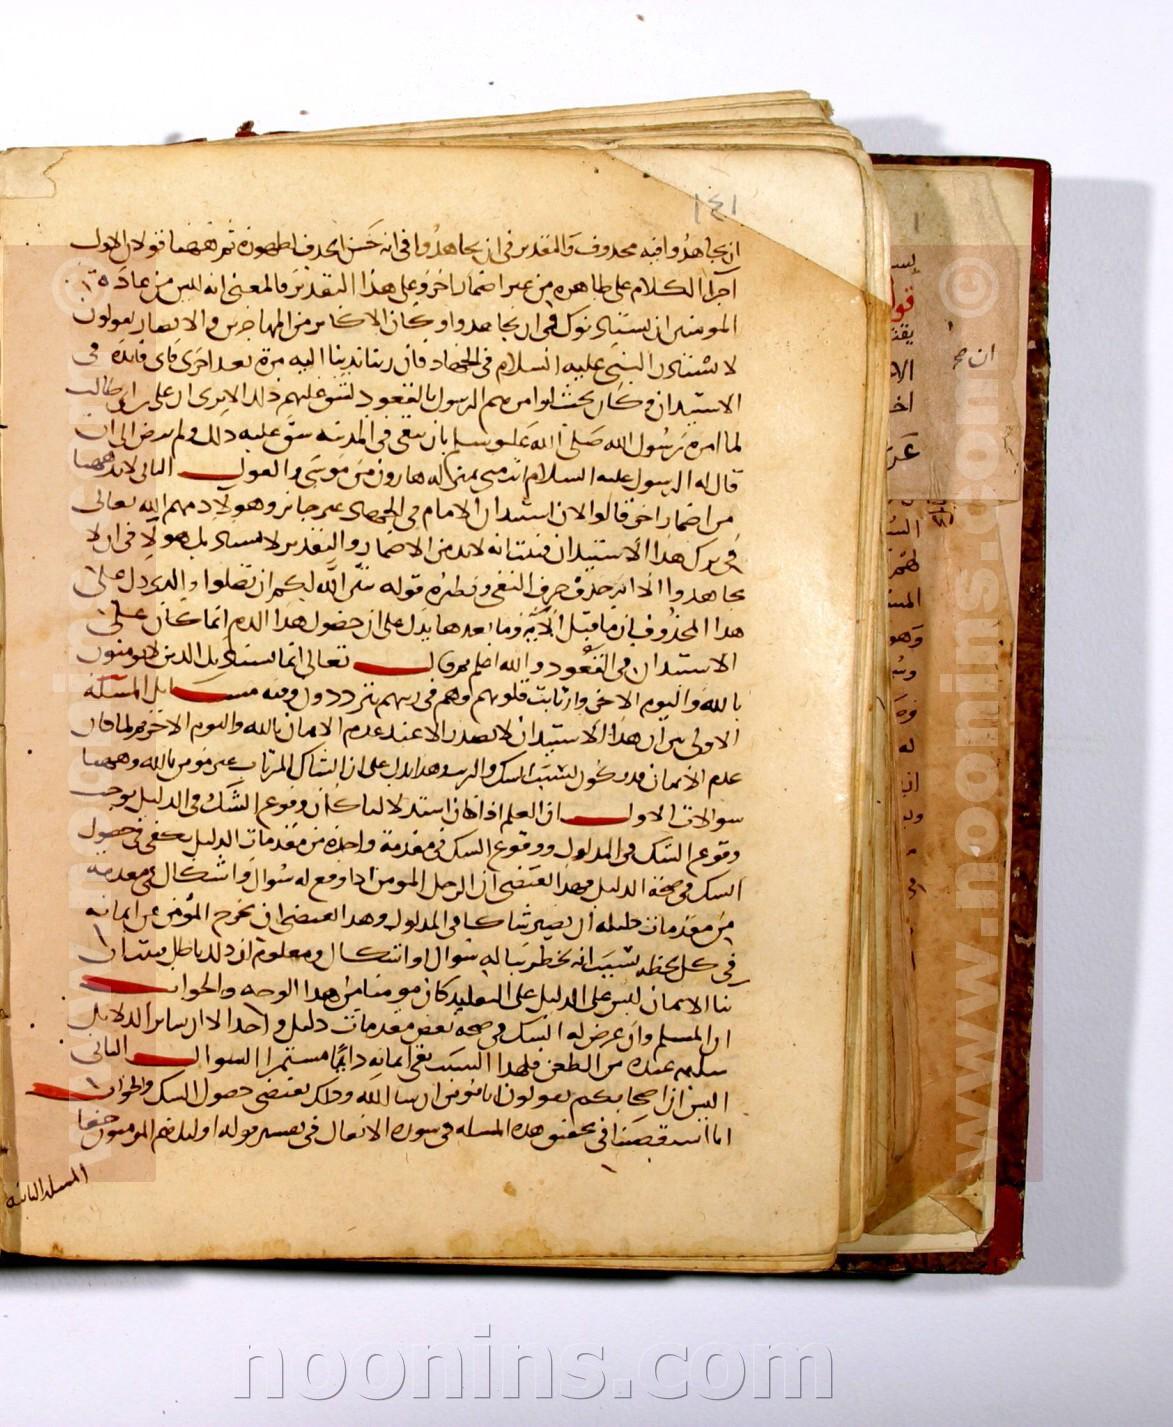 ١٤١
ان يجاهدوا فيه محذوف والتقدير في ان يجاهدوا في انه حسن الحذف لظهوره ثم ههنا قولان الاول
اجراء الكلام على ظاهره من غير اضمار اخر وعلى هذا التقدير فالمعنى انه ليس من عادة
المومنين ان يستاذنوك في ان يجاهدوا وكان الاكابر من المهاجرين والانصار يقولون
لا نستاذن النبي عليه السلام في الجهاد فان ربنا ندبنا اليه مرة بعد اخرى فاي فائدة في
الاستيذان وكان بحيث لو امرهم الرسول بالقعود لشق عليهم ذلك الا يرى ان علي بن ابي طالب
لما امره رسول الله صلى الله عليه وسلم بان يبقى في المدينة شق عليه ذلك ولم يرض الى ان
قال له الرسول عليه السلام انت مني بمنزلة هارون من موسى والقول الثاني لابد ههنا
من اضمار اخر قالوا لان استيذان الامام في الجهاد غير جائز وهولاء ذمهم الله تعالى
في ترك هذا الاستيذان فثبت انه لابد من الاضمار والتقدير لا يستاذنك هولاء في ان لا
يجاهدوا الا انه حذف حرف النفي ونظيره قوله يبين الله لكم ان تضلوا والذي دل على
هذا المحذوف ان ما قبل الاية وما بعدها يدل على ان حصول هذا الذم انما كان على
الاستيذان في القعود والله اعلم قال تعالى انما يستاذنك الذين لا يومنون
بالله واليوم الاخر وارتابت قلوبهم فهم في ريبهم يترددون وفيه مسائل المسئلة
الاولى بين ان هذا الاستيذان لا يصدر الا عند عدم الايمان بالله واليوم الاخر ثم لما كان
عدم الايمان قد يكون بسبب الشك والريب وهذا يدل على ان الشاك المرتاب غير مومن بالله وههنا
سوالات الاول ان العلم اذا كان استدلاليا كان وقوع الشك في الدليل يوجب
وقوع الشك في المدلول ووقوع الشك في مقدمة واحدة من مقدمات الدليل يكفي في حصول
الشك في صحة الدليل فهذا يقتضي ان الرجل المومن اذا وقع له سوال واشكال في مقدمة
من مقدمات دليله ان يصير شاكا في المدلول وهذا يقتضي ان يخرج المؤمن عن ايمانه
في كل لحظة بسبب انه يخطر بباله سوال واشكال ومعلوم ان ذلك باطل فثبت ان
بنا الايمان ليس على الدليل على التقليد كان مومنا من هذا الوجه والجواب
ان المسلم وان عرض له الشك في صحة بعض مقدمات دليل واحد الا ان سائر الدلائل
سليمة عنده من الطعن فلهذا السبب بقي ايمانه دائما مستمرا السوال الثاني
اليس ان اصحابكم يقولون انا مومن ان شا الله وذلك يقتضي حصول الشك والجواب
انا استقصينا في تحقيق هذه المسلة في سورة الانفال في تفسير قوله اولئك هم المومنون حقا
المسلة الثانية
ان صح
قول
الا
اخ
www.noonins.com
©
noonins.com